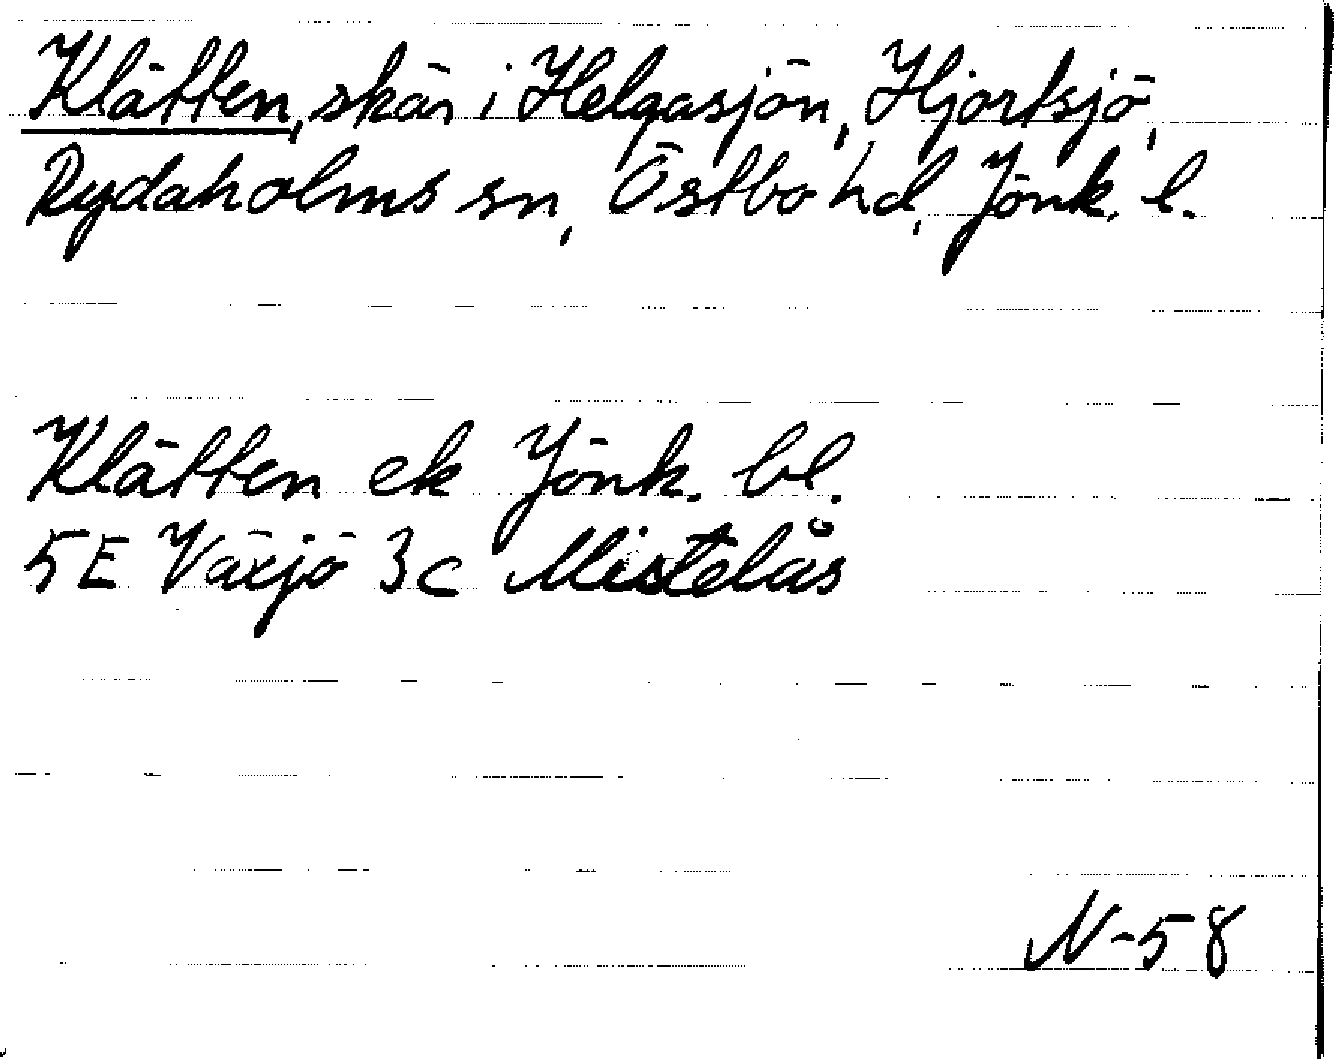 Klätten, skär i Helgasjön, Hjortsjö,
Rydaholms sn, Östbo hd, Jönk. l.
Klätten ek Jönk. bl.
5E Växjö 3c Mistelås
N-58